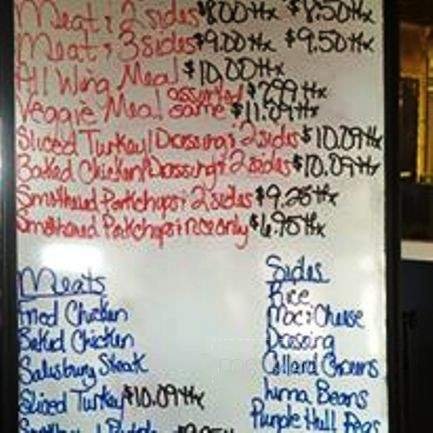 Meat & 2 sides $8.00+tx $8.50+tx
Meat & 3 sides $9.00+tx $9.50+tx
All Wing Meal $10.00+tx
Veggie Meal assorted $7.99+tx
same $11.09+tx
Sliced Turkey/Dressing & 2 sides $10.09+tx
Baked Chicken/Dressing & 2 sides $10.09+tx
Smothered Porkchops & 2 sides $9.25+tx
Smothered Porkchops & rice only $6.95+tx
Meats
Fried Chicken
Baked Chicken
Salisbury Steak
Sliced Turkey $10.09+tx
Smothered
Sides
Rice
Mac & Cheese
Dressing
Collard Greens
Lima Beans
Purple Hull Peas